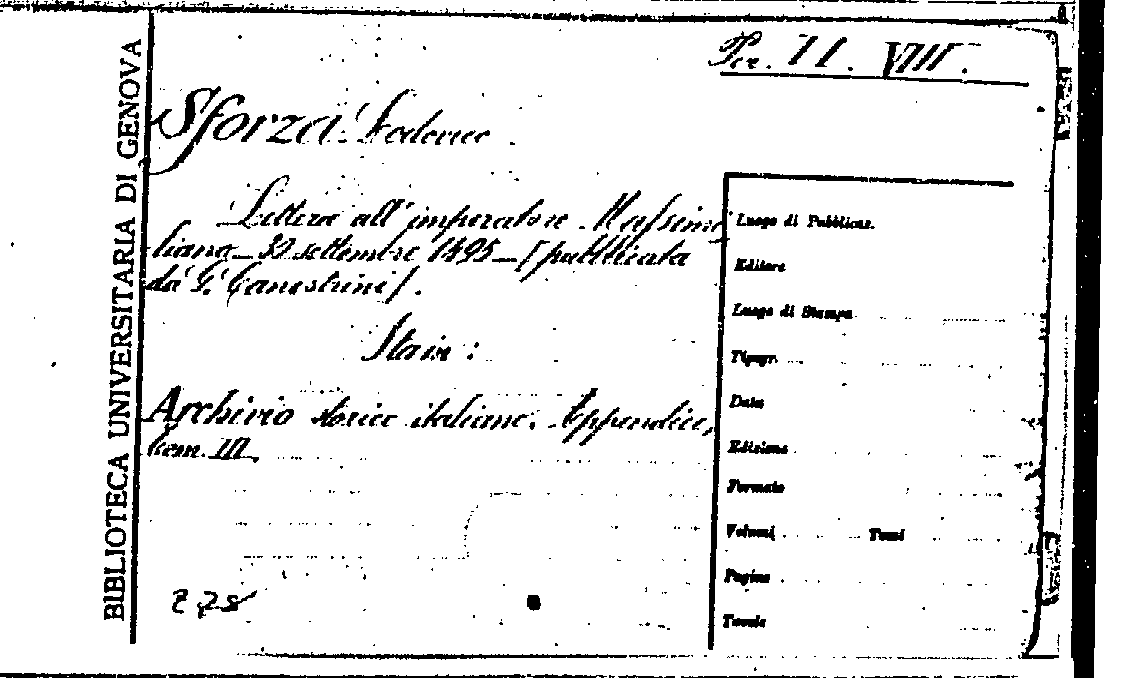 BIBLIOTECA UNIVERSITARIA DI GENOVA
Per. II. VIII.
Sforza Federico
Lettera all'imperatore Massimi
liano - 30 settembre 1495 - [pubblicata
da G. Canestrini].
Sta in:
Archivio storico italiano. Appendice,
tom. III.
Luogo di Pubblicaz.
Editore
Luogo di Stampa
Tipogr.
Data
Edizione
Formato
Volumi Tomi
Pagine
Tavole